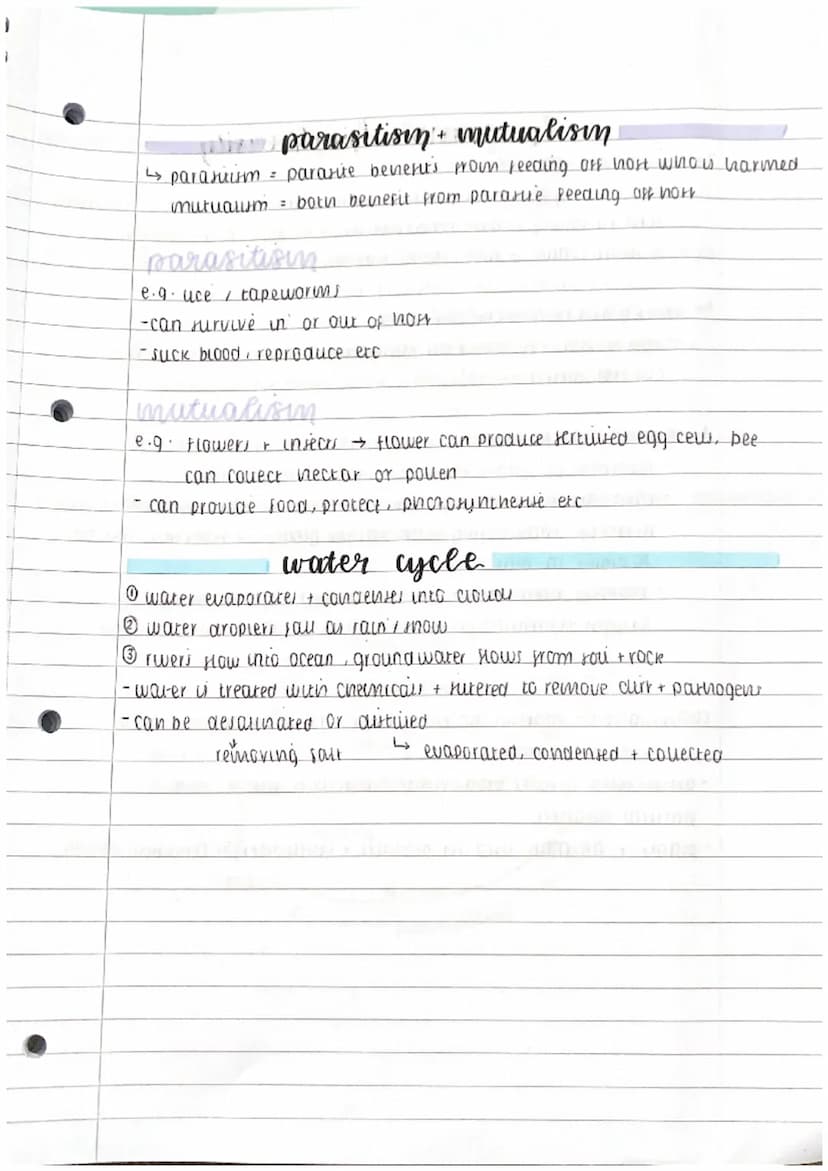 parasitism + mutualism
↳ parasitism = parasite benefits from feeding off host who is harmed
mutualism = both benefit from parasite feeding off host
parasitism
e.g. lice / tapeworms
-can survive in or out of host
-suck blood, reproduce etc
mutualism
e.g. flowers + insects → flower can produce fertilised egg cells, bee
can collect nectar or pollen
- can provide food, protect, photosynthesise etc
water cycle
① water evaporates + condenses into clouds
② water droplets fall as rain / snow
③ rivers flow into ocean, groundwater flows from soil + rock
-water is treated with chemicals + filtered to remove dirt + pathogens
-can be desalinated or distilled
removing salt ↳ evaporated, condensed + collected